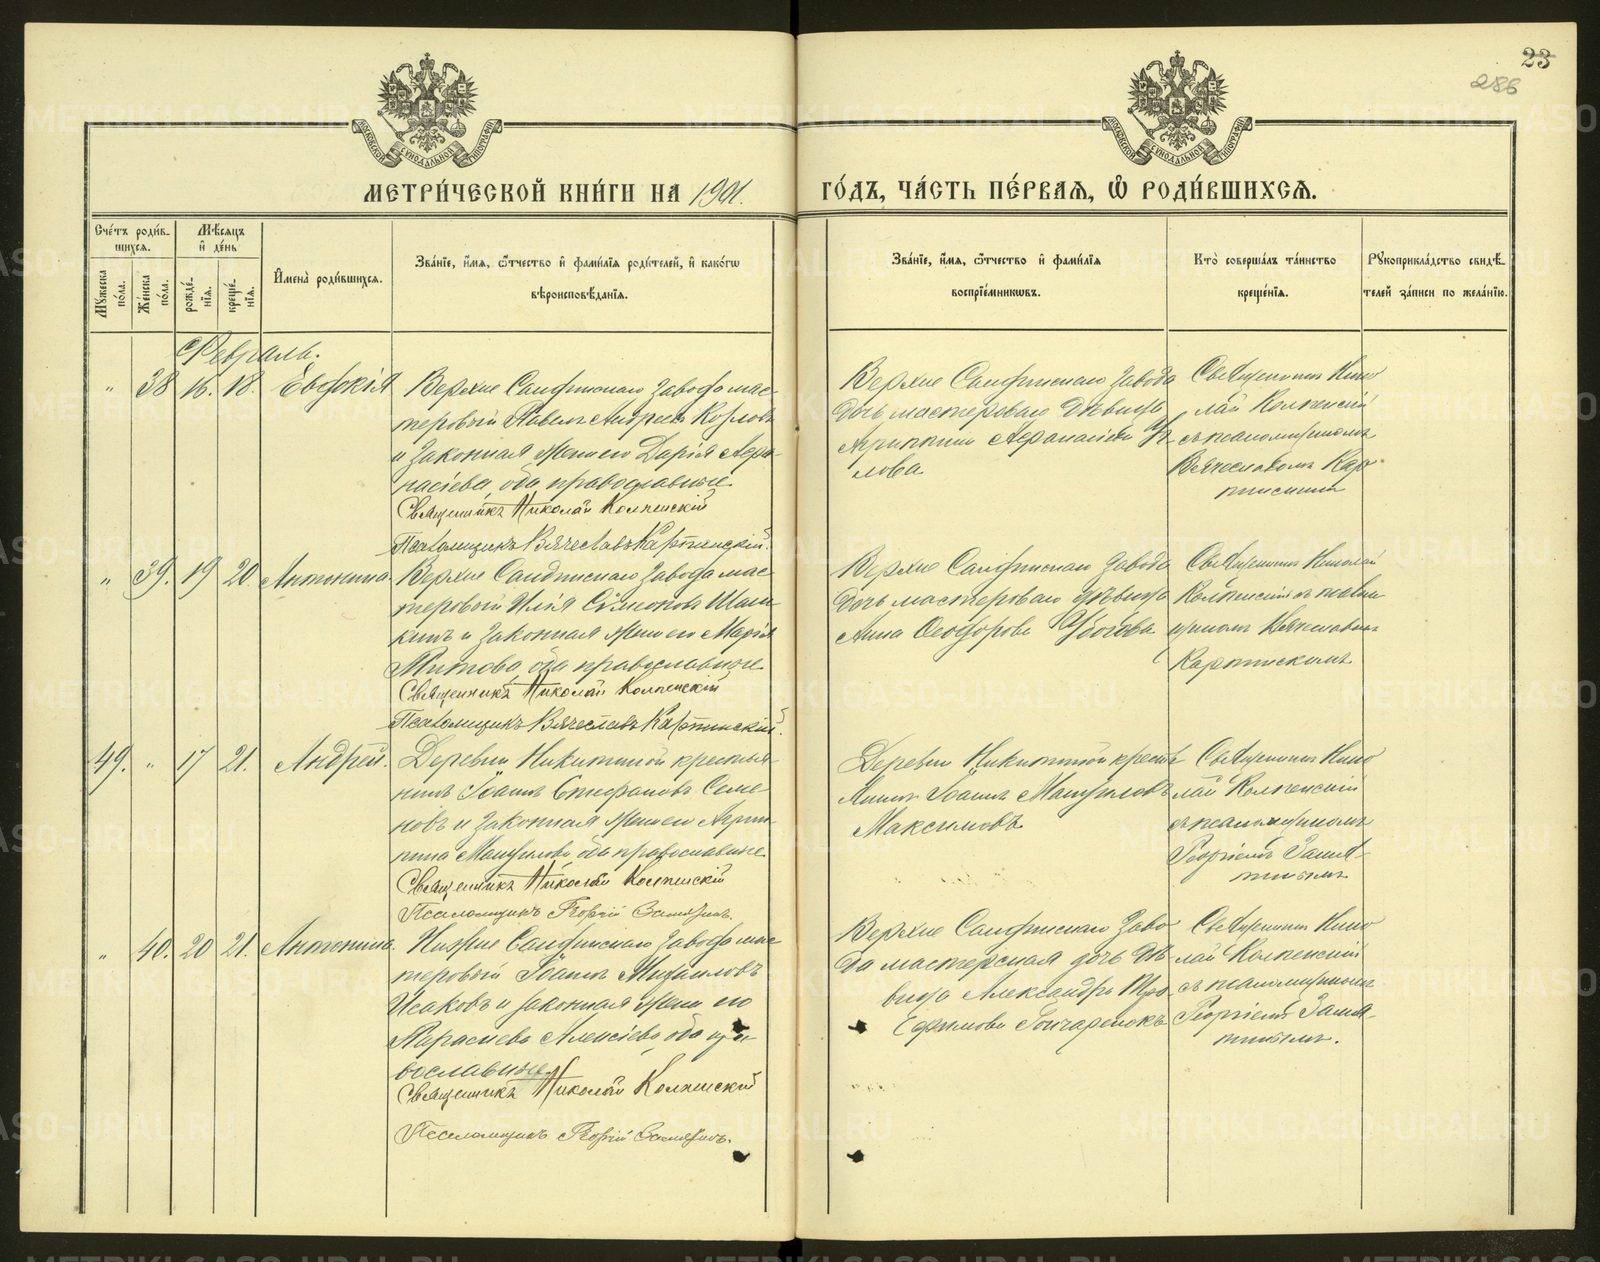 23
286
МОСКОВСКОЙ СУНОДАЛЬНОЙ ТИПОГРАФІИ
МОСКОВСКОЙ СУНОДАЛЬНОЙ ТИПОГРАФІИ
МЕТРИ́ЧЕСКОЙ КНИ́ГИ НА 1901.
ГО́ДЪ, ЧА́СТЬ ПЕ́РВАѦ, Ѿ РОДИ́ВШИХСѦ.
Сче́тъ роди́в-
шихся.
Мужеска по́ла.
Же́нска по́ла.
Мѣ́сяцъ и де́нь
рожде́нія.
креще́нія.
Имена̀ роди́вшихся.
Зва́ніе, и́мя, ѻ҆́тчество и фами́лія роди́телей, и како́гѡ
вѣроисповѣ́данія.
Зва́ніе, и́мя, ѻ҆́тчество и фами́лія
воспріе́мникѡвъ.
Кто̀ соверша́лъ та́инство
креще́нія.
Рукоприкла́дство свидѣ́-
телей за́писи по жела́нію.
Февраль.
" 38 16. 18. Евдокія
Верхне Салдинскаго завода мас-
теровый Павелъ Андреевъ Козловъ
и законная жена его Дарія Афа-
насіева оба православные
Священникъ Николай Колпенскій
Псаломщикъ Вячеславъ Карпинскій.
Верхне Салдинскаго завода
дочь мастероваго дѣвица
Агриппина Афанасіева
лова
Священникъ Нико
лай Колпенскій
съ псаломщикомъ
Вячеславомъ Кар
пинскимъ
" 39. 19 20. Антонина
Верхне Салдинскаго завода мас
теровый Илія Симоновъ Шаш-
кинъ и законная жена его Марія
Титова оба православные
Священникъ Николай Колпенскій
Псаломщикъ Вячеславъ Карпинскій.
Верхне Салдинскаго завода
дочь мастероваго дѣвица
Анна Ѳеодорова Убогова
Священникъ Николай
Колпенскій съ псалом
щикомъ Вячеславомъ
Карпинскимъ
49. " 17 21. Андрей.
Деревни Никитиной крестья-
нинъ Іоаннъ Стефановъ Семе-
новъ и законная жена его Агрип-
пина Мануилова оба православные
Священникъ Николай Колпенскій
Псаломщикъ Георгій Замятинъ.
Деревни Никитиной кресть
янинъ Іоаннъ Мануиловъ
Максимовъ
Священникъ Нико
лай Колпенскій
съ псаломщикомъ
Георгіемъ Замя-
тинымъ
" 40. 20 21. Антонина.
Нижне Салдинскаго завода мас
теровый Іоаннъ Михаиловъ
Исаковъ и законная жена его
Параскева Алексіева оба пра-
вославные
Священникъ Николай Колпенскій
Псаломщикъ Георгій Замятинъ.
Верхне Салдинскаго заво
да мастерская дочь дѣ
вица Александра
Ефимова Гончаренокъ
Священникъ Нико
лай Колпенскій
съ псаломщикомъ
Георгіемъ Замя-
тинымъ.
METRIKI.GASO-URAL.RU